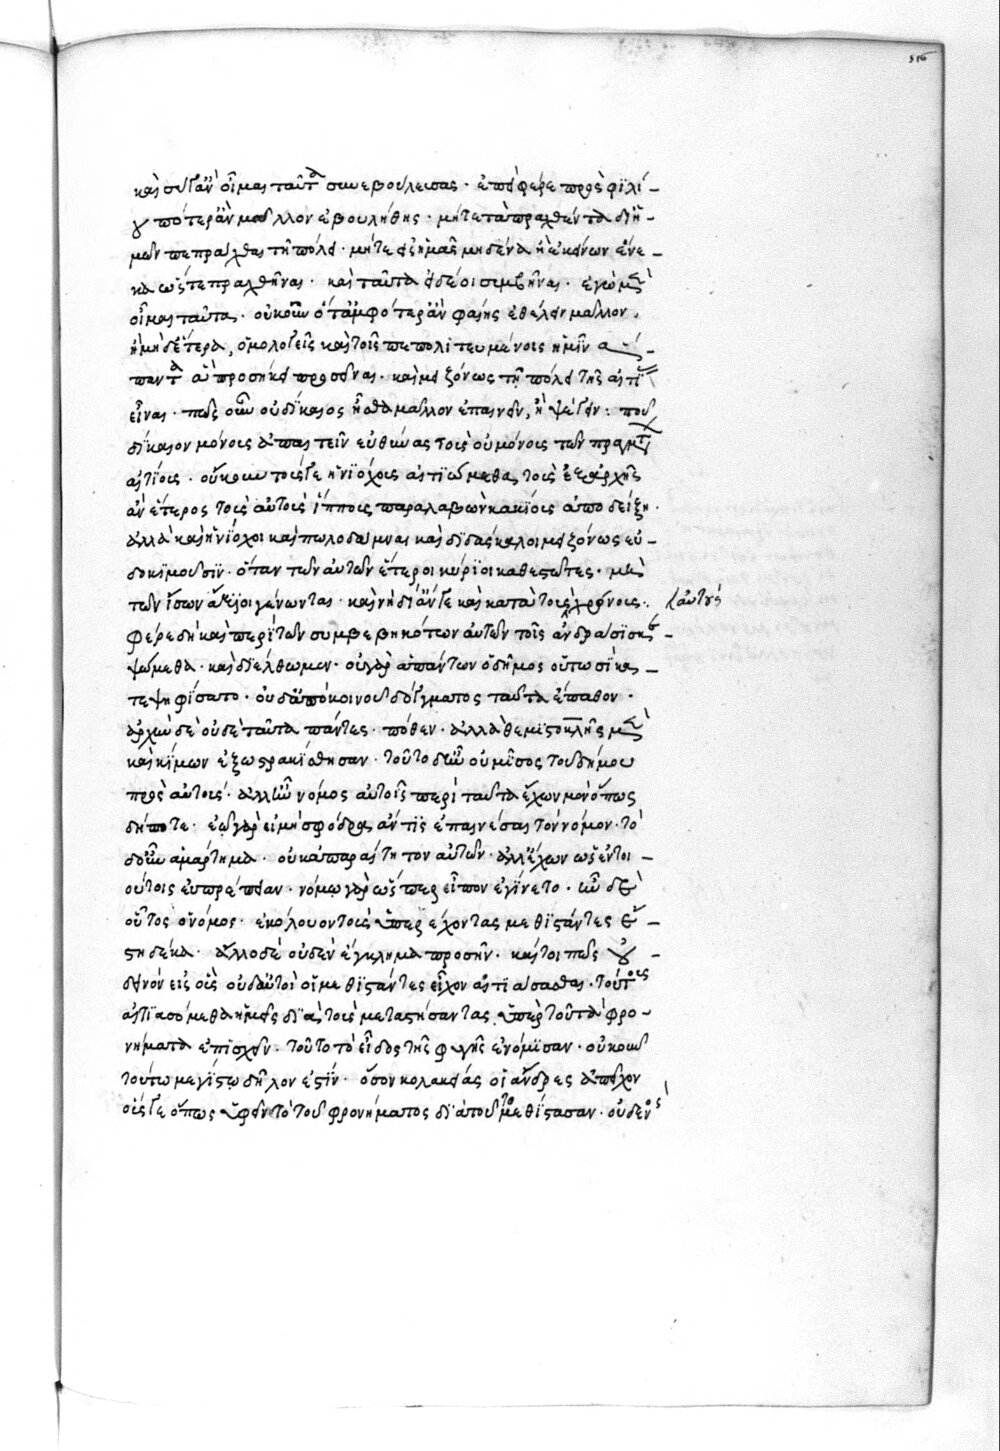 316
καὶ σὺ γ' ἂν οἶμαι ταῦτα συνεβούλευσας. ἐπεὶ φέρε πρὸς φιλί-
ου πότερ' ἂν μᾶλλον ἐβουλήθης. μήτε τὰ πραχθέντα δι' ἡ-
μῶν πεπρᾶχθαι τῇ πόλει. μήτε ἐξ ἡμῶν μηδένα ἢ ἐκείνων ἕνε-
κα ὥστε πραχθῆναι. καὶ ταῦτα ἔδει οἱ συμβῆναι. ἐγὼ μὲν
οἶμαι ταῦτα. οὐκοῦν ὅτ' ἀμφότερ' ἂν φαίης ἐθέλειν μᾶλλον,
ἢ μηδέτερα, ὁμολογεῖς καὶ τοῖς πεπολιτευμένοις ἡμῖν
παντα ἃ προσήκει προσεῖναι. καὶ μειζόνως τῇ πόλει τῆς αἰτί
εἶναι. πῶς οὖν οὐ δίκαιος ἦσθα μᾶλλον ἐπαινεῖν, ἢ ψέγειν. ποῦ
δίκαιον μόνοις ἀπαιτεῖν εὐθύνας τοῖς οὐ μόνοις τῶν πραγμάτων
αἰτίοις. οὔκουν τοῖς γε ἡνιόχοις αἰτιώμεθα, τοῖς ἐξαρχῆς
ἂν ἕτερος τοῖς αὐτοῖς ἵπποις παραλαβὼν κακίους ἀποδείξῃ.
ἀλλὰ καὶ ἡνίοχοι καὶ πωλοδάμναι καὶ διδάσκαλοι μειζόνως εὐ
δοκιμοῦσιν. ὅταν τῶν αὐτῶν ἕτεροι κύριοι καθεστῶτες. μὴ
τῶν ἴσων ἄξιοι γένωνται. καὶ νὴ δί' ἄν γε καὶ κατὰ τοὺς χρόνους.
αὐτοὺς
φέρε δὴ καὶ περὶ τῶν συμβεβηκότων αὐτῶν τοῖς ἀνδράσι σκε-
ψώμεθα. καὶ διέλθωμεν. οὐ γὰρ ἁπάντων ὁ δῆμος οὕτωσὶ κα-
τεψηφίσατο. οὐδ' ἀπὸ κοινοῦ δόγματος ταῦτα ἔπαθον.
ἀρχὴν δὲ οὐδὲ ταῦτα πάντες. πόθεν. ἀλλὰ θεμιστοκλῆς μὲν
καὶ κίμων ἐξωστρακίσθησαν. τοῦτο δ' ἦν οὐ μῖσος τοῦ δήμου
πρὸς αὐτούς. ἀλλ' ἦν νόμος αὐτοῖς περὶ ταῦτα ἔχων μὲν ὅπως
δήποτε. ἐῶ γὰρ εἰ μὴ σφόδρα ἄν τις ἐπαινέσαι τὸν νόμον. τὸ
δ' οὖν ἁμάρτημα. οὐκ ἀπαραίτητον αὐτῶν. ἀλλ' ἔχων ὡς ἐν τοι-
ούτοις εὐπρέπειαν. νόμῳ γὰρ ὥσπερ εἶπον ἐγίνετο. ἦν δὲ
οὗτος ὁ νόμος. ἐκόλουον τοὺς ὑπερέχοντας μεθιστάντες ἔ-
τη δέκα. ἄλλο δὲ οὐδὲν ἔγκλημα προσῆν. καίτοι πῶς οὐ -
δεινὸν εἰς οἷς οὐδ' αὐτοὶ οἱ μεθιστάντες εἶχον αἰτιάσασθαι. τούτοις
αἰτιασόμεθα ἡμεῖς δι' ἃ τοὺς μεταστήσαντας, ὑπὲρ τοῦ τὰ φρο-
νήματα ἐπισχεῖν. τοῦτο τὸ εἶδος τῆς φυγῆς ἐνόμισαν. οὐκοῦν
τούτῳ μεγίστῳ δῆλον ἐστίν. ὅσον κολακείας οἱ ἄνδρες ἀπεῖχον
οἵ γε ὅπως ὑφεῖντό του φρονήματος διὰ τοῦτο μεθίστασαν. οὐδενὸς